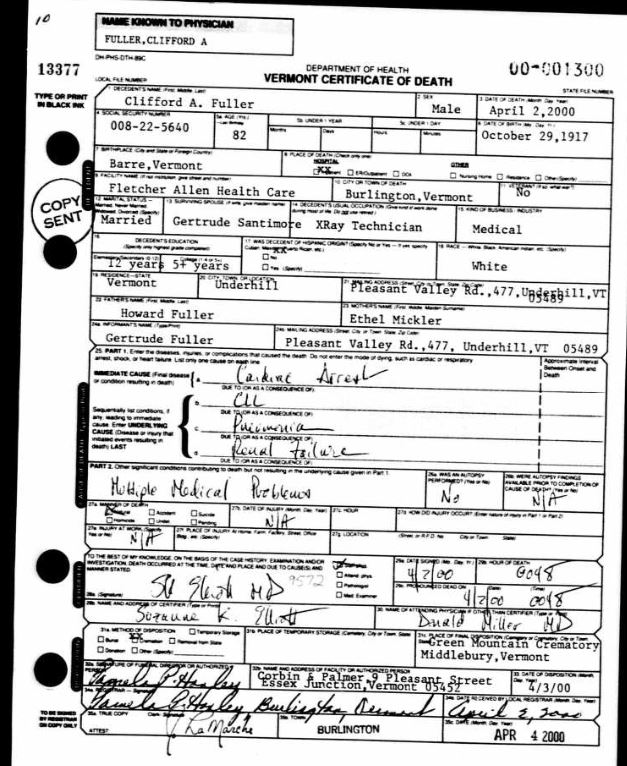 10
NAME KNOWN TO PHYSICIAN
FULLER,CLIFFORD A
DH-PHS-DTH-89C
13377
DEPARTMENT OF HEALTH
00-001300
LOCAL FILE NUMBER
VERMONT CERTIFICATE OF DEATH
STATE FILE NUMBER
TYPE OR PRINT
IN BLACK INK
1 DECEDENT'S NAME (First, Middle, Last)
2 SEX
3 DATE OF DEATH (Month, Day, Year)
Clifford A. Fuller
Male
April 2,2000
4 SOCIAL SECURITY NUMBER
5b UNDER 1 YEAR
5c UNDER 1 DAY
6 DATE OF BIRTH
008-22-5640
82
Months
Days
Hours
Minutes
October 29,1917
7 BIRTHPLACE (City and State or Foreign Country)
8 PLACE OF DEATH (Check only one)
Barre,Vermont
HOSPITAL
OTHER
ER/Outpatient
DOA
Nursing Home
Residence
Other (Specify)
9 FACILITY NAME (If not institution, give street and number)
10 CITY OR TOWN OF DEATH
Fletcher Allen Health Care
Burlington,Vermont
No
COPY
SENT
12 MARITAL STATUS
13 SURVIVING SPOUSE
14 DECEDENT'S USUAL OCCUPATION
15 KIND OF BUSINESS / INDUSTRY
Married
Gertrude Santimore
XRay Technician
Medical
DECEDENT'S EDUCATION
17 WAS DECEDENT OF HISPANIC ORIGIN?
18 RACE
12 years
5+ years
No
Yes (Specify)
White
19 RESIDENCE-STATE
20 CITY, TOWN, OR LOCATION
21 MAILING ADDRESS
Vermont
Underhill
Pleasant Valley Rd.,477,Underhill,VT
05489
22 FATHER'S NAME (First, Middle, Last)
23 MOTHER'S NAME (First, Middle, Maiden Surname)
Howard Fuller
Ethel Mickler
24a INFORMANT'S NAME (Type/Print)
24b MAILING ADDRESS (Street, City or Town, State, Zip Code)
Gertrude Fuller
Pleasant Valley Rd.,477, Underhill,VT 05489
25. PART 1. Enter the diseases, injuries, or complications that caused the death. Do not enter the mode of dying, such as cardiac or respiratory
arrest, shock, or heart failure. List only one cause on each line
Approximate Interval
Between Onset and
Death
IMMEDIATE CAUSE (Final disease
or condition resulting in death)
a
Cardiac Arrest
DUE TO (OR AS A CONSEQUENCE OF)
b
CLL
DUE TO (OR AS A CONSEQUENCE OF)
Sequentially list conditions, if
any, leading to immediate
cause. Enter UNDERLYING
CAUSE (Disease or injury that
initiated events resulting in
death) LAST
c
Pneumonia
DUE TO (OR AS A CONSEQUENCE OF)
d
Renal Failure
DUE TO (OR AS A CONSEQUENCE OF)
PART 2. Other significant conditions contributing to death but not resulting in the underlying cause given in Part 1.
Multiple Medical Problems
26a WAS AN AUTOPSY
PERFORMED? (Yes or No)
No
26b WERE AUTOPSY FINDINGS
AVAILABLE PRIOR TO COMPLETION OF
CAUSE OF DEATH? (Yes or No)
N/A
27a MANNER OF DEATH
Natural
Accident
Suicide
Homicide
Pending
27b DATE OF INJURY (Month, Day, Year)
N/A
27c HOUR
27d HOW DID INJURY OCCUR?
27e INJURY AT WORK
N/A
27f PLACE OF INJURY At Home, Farm, Factory, Street, Office
27g LOCATION
TO THE BEST OF MY KNOWLEDGE, ON THE BASIS OF THE CASE HISTORY, EXAMINATION AND/OR
INVESTIGATION, DEATH OCCURRED AT THE TIME, DATE AND PLACE AND DUE TO CAUSE(S) AND
MANNER STATED
9572
Attend. phys.
Pathologist
Med. Examiner
28a (Signature)
29a DATE SIGNED
4/2/00
29b HOUR OF DEATH
0048
PRONOUNCED DEAD ON
4/2/00
0048
28b NAME AND ADDRESS OF CERTIFIER (Type or Print)
Suzanne K. Elliott
30 NAME OF ATTENDING PHYSICIAN IF OTHER THAN CERTIFIER
Donald Miller MD
31a METHOD OF DISPOSITION
Temporary Storage
Burial
Cremation
Removal from State
Donation
Other (Specify)
31b PLACE OF TEMPORARY STORAGE
31c PLACE OF FINAL DISPOSITION
Green Mountain Crematory
Middlebury,Vermont
32a SIGNATURE OF FUNERAL DIRECTOR OR AUTHORIZED
PERSON
32b NAME AND ADDRESS OF FACILITY OR AUTHORIZED PERSON
33 DATE OF DISPOSITION
Corbin & Palmer,9 Pleasant Street
Essex Junction,Vermont 05452
4/3/00
TO BE SIGNED
BY REGISTRAR
ON COPY ONLY
34a REGISTRAR
34b DATE RECEIVED BY LOCAL REGISTRAR
Burlington, Vermont
35a TRUE COPY
ATTEST:
35b TOWN
BURLINGTON
35c DATE
APR 4 2000